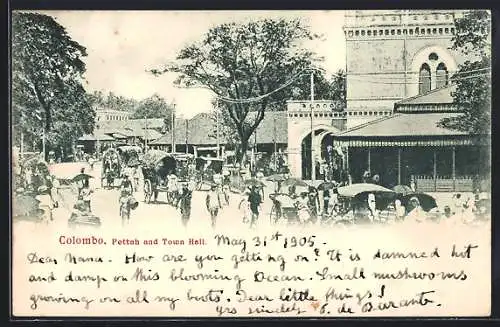 Colombo. Pettah and Town Hall. May 31st 1905.
Dear Nana. How are you getting on? It is damned hot
and damp on this blooming Ocean. Small mushrooms
growing on all my boots. Dear little things!
Yrs sincely S. de Barante.